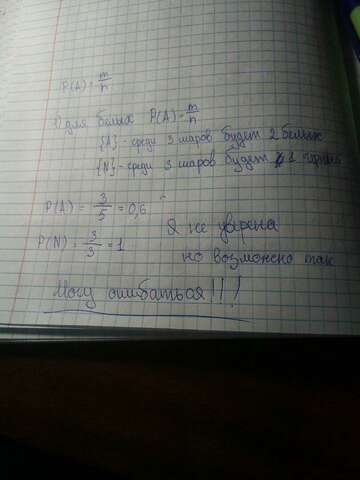 P(A) = m/n
1) для белых P(A) = m/n
{A} - среди 3 шаров будет 2 белых
{N} - среди 3 шаров будет 1 черный
P(A) = 3/5 = 0,6
P(N) = 3/3 = 1
Я не уверена
но возможно так
Могу ошибаться!!!